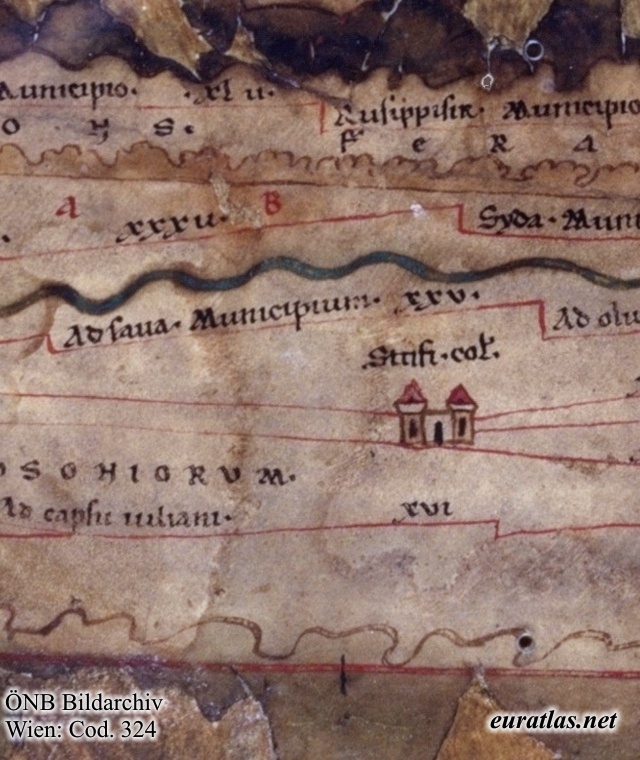 Municipio. .xl u.
Rusippisir. Municipio
o y s.
f e R a
A B
xxxu. Syda. Muni
Ad sava. Municipium. xxv. Ad olu
Sitifi. col.
OSONIORVM.
Ad capsu iuliani. xvi
ÖNB Bildarchiv
Wien: Cod. 324
euratlas.net